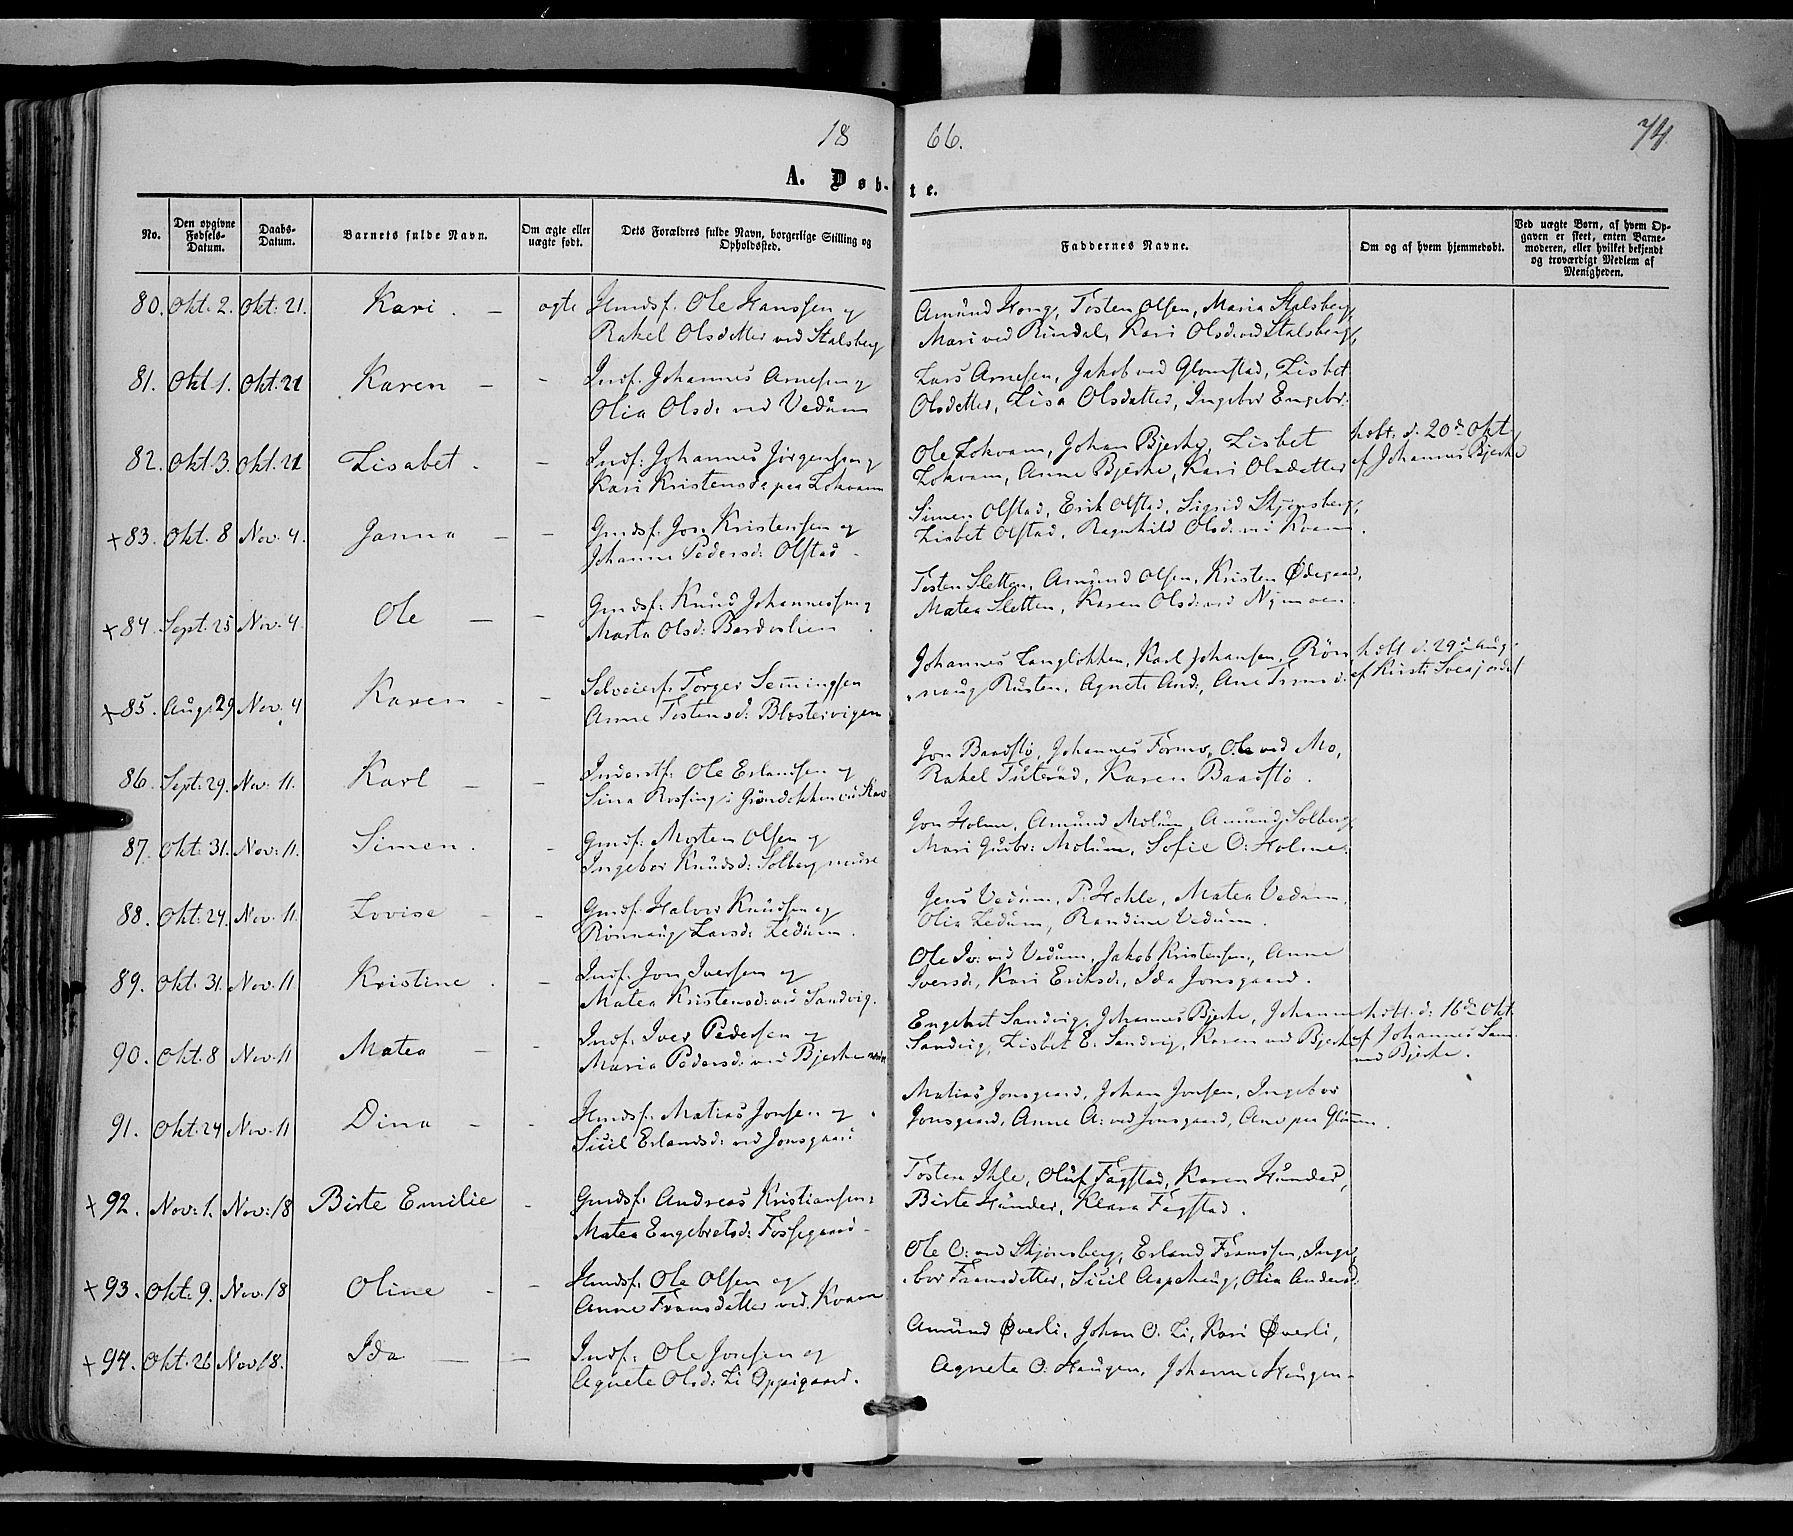 18 66. 74.
A. Døb- te.
No. Den opgivne Fødsels-Datum. Daabs-Datum. Barnets fulde Navn. Om ægte eller uægte født. Dets Forældres fulde Navn, borgerlige Stilling og Opholdssted. Faddernes Navne. Om og af hvem hjemmedøbt. Ved uægte Børn, af hvem Opgaven er skeet, enten Barnemoderen, eller hvilket bekjendt og troværdigt Medlem af Menigheden.
80. Okt: 2. Okt: 21. Kari. — ægte Hmdsf: Ole Hanssen og Amund Hong, Tosten Olsen, Maria Stalsberg,
Rakel Olsdatter ved Stalsberg Mari ved Rindal, Kari Olsd: ved Stalsberg,
81. Okt 1. Okt: 21 Karen — - Indf: Johannes Arnesen og Lars Arnesen, Jakob ved Glomstad, Lisbet
Olia Olsd: ved Vedum Olsdatter, Lisa Olsdatter, Ingebor Engebr:
82. Okt: 3. Okt: 21 Lisabet. - Indf: Johannes Jørgensen og Ole Lokvam, Johan Bjerke, Lisbet h.døbt. d. 20de Okt
Kari Kristensd: paa Lokvam Lokvam, Anne Bjerke, Kari Olsdatter af Johannes Bjerke
+ 83. Okt: 8 Nov: 4. Janna — - Gmdsf: Jon Kristensen og Simen Olstad, Erik Olstad, Sigrid Skjønsberg,
Johanne Pedersd: Olstad. Lisbet Olstad, Ragnhild Olsd: ved Kvam.
+ 84. Sept: 25 Nov: 4. Ole — - Gmdsf: Knud Johannessen og Tosten Sletten, Amund Olsen, Kristen Ødegaard,
Marta Olsd: Bardoslien Matea Sletten, Karen Olsd: ved Nymoen.
+ 85. Aug: 29 Nov: 4 Karen. - Selveierf: Torger Semingsen Johannes Langlokken, Karl Johansen, Røn- h.døbt d. 29de Aug:
Anne Tostensd: Blostervigen naug Rusten, Agnete And:, Ane af Kirsti
86. Sept: 29. Nov: 11. Karl — - Inderstf: Ole Erlandsen og Jon Baadstø, Johannes Formo, Ole ved Mo,
Sina Rossing i Rakel Karen Baadstø.
87. Okt: 31. Nov: 11. Simen. - Gmdsf: Morten Olsen og Jon Holme, Amund Molum, Amund Solberg,
Ingebor Knudsd: Solberg nedre Mari Gudbr: Molum, Sofie O: Holme.
88. Okt: 24. Nov: 11. Lovise — - Gmdsf: Halvor Knudsen og Jens Vedum, P. Hohle, Matea Vedum,
Rønnaug Larsd: Ledum. Olia Ledum, Randine Vedum.
89. Okt: 31. Nov: 11 Kristine. - Indf: Jon Iversen og Ole Iv: ved Vedum, Jakob Kristensen, Anne
Matea Kristensd: ved Sandvig. Iversd:, Kari Eriksd:, Ida Jonsgaard.
90. Okt: 8 Nov: 11 Matea — - Indf: Iver Pedersen og Engebret Sandvig, Johannes Bjerke, Johanne h.døbt. d: 16de Okt
Maria Pedersd: ved Bjerke nedre Sandvig, Lisbet E: Sandvig, Karen ved Bjerke af Johannes Sam:
ved Bjerke.
91. Okt: 24 Nov: 11 Dina — - Hmdsf: Matias Jonsen og Matias Jonsgaard, Johan Jonsen, Ingebor
Sicil Erlandsd: ved Jonsgaard Jonsgaard, Anne A: ved Jonsgaard, Ane paa
+ 92. Nov: 1. Nov: 18 Birte Emilie - Gmdsf: Andreas Kristiansen: Tosten Ihle, Oluf Fagstad, Karen Hunder,
Matea Engebretsd: Fossegaard Birte Hunder, Klara Fagstad.
+ 93. Okt: 9. Nov: 18 Oline - - Hmdsf: Ole Olsen og Ole O: ved Skjønsberg, Erland Franssen, Inge-
Anne Fransdatter ved Kvam bor Fransdatter, Sicil Olia Andersd:
+ 94. Okt. 26 Nov: 18. Ida — — Indf: Ole Jonsen og Amund Øverli, Johan O. Li, Kari Øverli,
Agnete Olsd: Li Oppigaard. Agnete O: Haugen, Johanne Haugen.